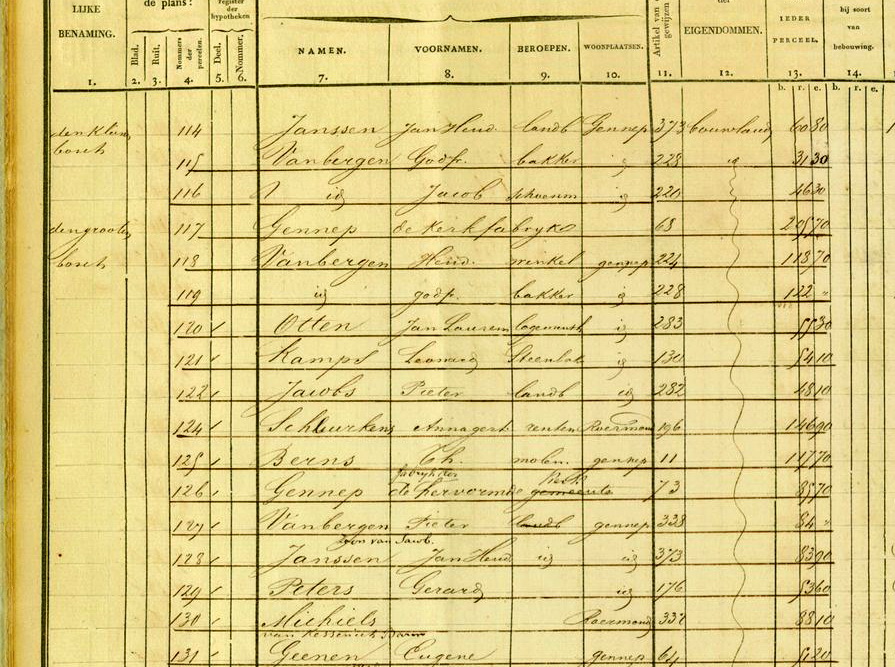 LIJKE BENAMING. de plans: Blad. Ruit. Nommers der perceelen. register der hypotheken Deel. Nommer. NAMEN. VOORNAMEN. BEROEPEN. WOONPLAATSEN. Artikel van gewijzen der EIGENDOMMEN. IEDER PERCEEL. bij soort van bebouwing.
1. 2. 3. 4. 5. 6. 7. 8. 9. 10. 11. 12. 13. 14.
b. r. e. b. r. e.
114 Janssen Jan Hend. landb Gennep 373 bouwland 60 80
bosch
115 Vanbergen Godfr. bakker id 228 id 31 30
116 id Jacob schoenm id 220 46 30
den grooten 117 Gennep de Kerkfabryke 68 2 05 70
bosch 118 Vanbergen Hend. winkel gennep 224 1 13 70
119 id godfr. bakker id 228 1 22 "
120 Otten Jan Laurens id 283 55 30
121 Kamps Leonard id 130 54 10
122 Jacobs Pieter landb id 282 48 10
124 Scheurkens Annagert renten Roermond 196 1 46 90
125 Berns Th. molen. gennep 11 1 47 70
fabryk der Kerk
126 Gennep de hervormde gemeente 73 85 70
127 Vanbergen Pieter landb gennep 338 84 "
zoon van Jacob.
128 Janssen Jan Hend id id 373 83 90
129 Peters Gerard id 176 53 60
130 Michiels Roermond 332 88 10
van Kessenich Baron
131 Geenen Eugene gennep 64 51 20